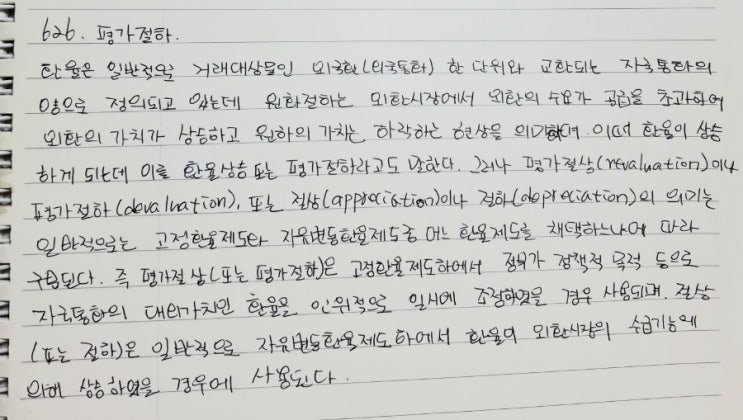 626. 평가절하.
환율은 일반적으로 거래대상물인 외국환(외국통화) 한 단위와 교환되는 자국통화의
양으로 정의되고 있는데 원화절하는 외환시장에서 외환의 수요가 공급을 초과하여
외환의 가치가 상승하고 원화의 가치는 하락하는 현상을 의미하며 이때 환율이 상승
하게 되는데 이를 환율상승 또는 평가절하라고도 말한다. 그러나 평가절상(revaluation)이나
평가절하(devaluation), 또는 절상(appreciation)이나 절하(depreciation)의 의미는
일반적으로는 고정환율제도와 자유변동환율제도중 어느 환율제도를 채택하느냐에 따라
구분된다. 즉 평가절상(또는 평가절하)은 고정환율제도하에서 정부가 정책적 목적 등으로
자국통화의 대외가치인 환율을 인위적으로 일시에 조정하였을 경우 사용되며, 절상
(또는 절하)은 일반적으로 자유변동환율제도하에서 환율이 외환시장의 수급기능에
의해 상승하였을 경우에 사용된다.